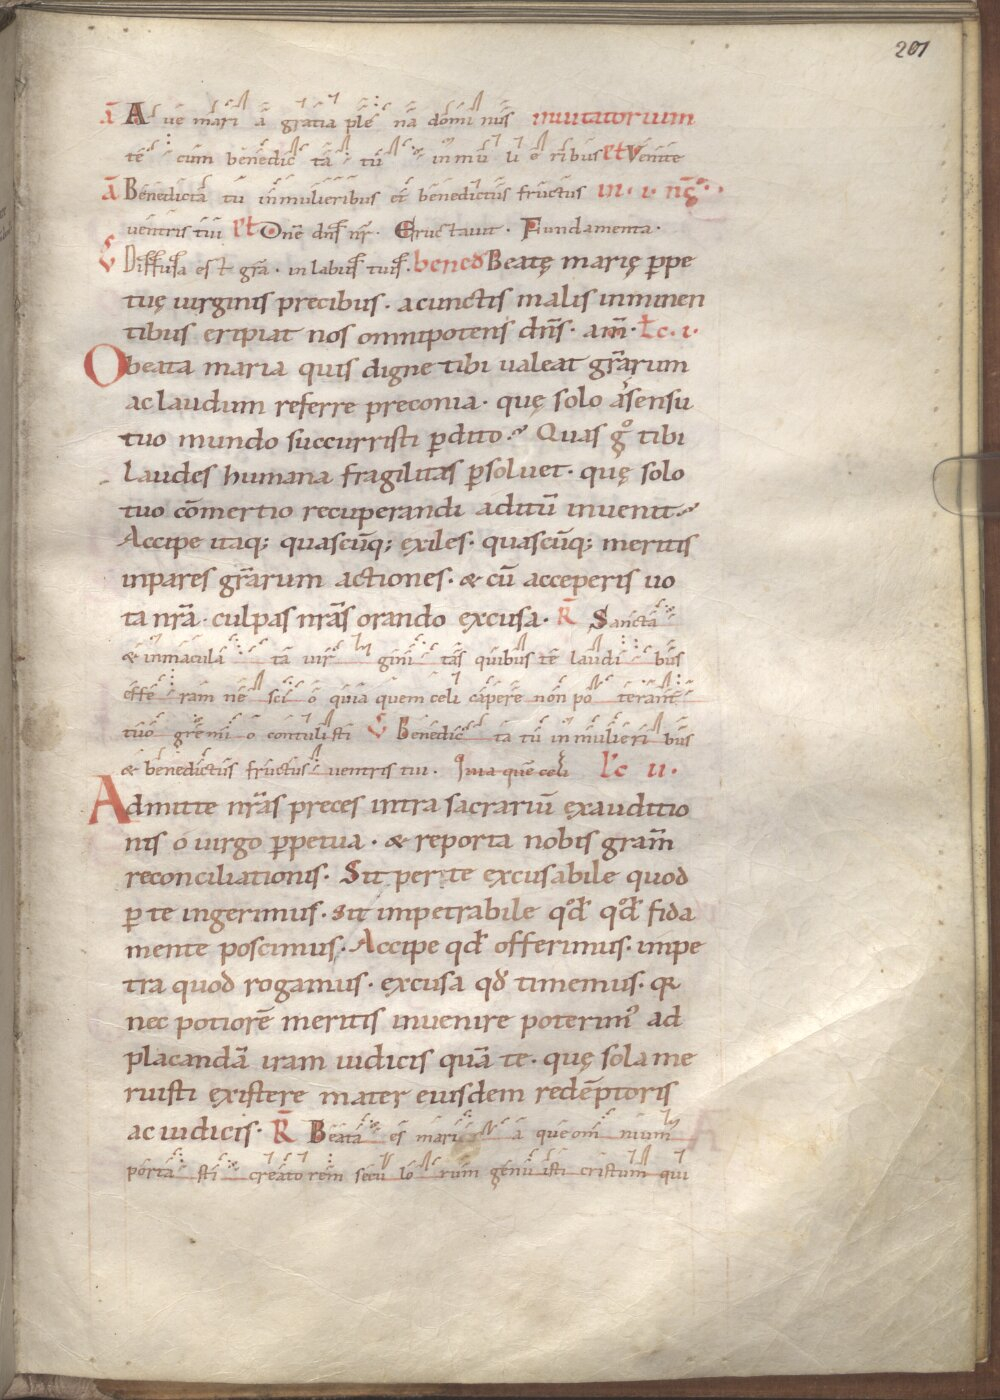 201
ā Ave mari a gratia ple na domi nus inuitatorium
te cum benedic ta tu in mu li e ribus et Venite
ā Benedicta tu in mulieribus et benedictus fructus in · i · nō̄c ·
uentris tui et Dne dns̄ nr̄ · Eructauit · Fundamenta ·
V Diffusa est gr̄a · in labiis tuis · bened Beatę marię ꝑpe
tuę uirginis precibus · a cunctis malis inminen
tibus eripiat nos omnipotens dn̄s · am̄ · Lc · i ·
O beata maria quis digne tibi ualeat gr̄arum
ac laudum referre preconia · quę solo assensu
tuo mundo succurristi ꝑdito · Quas gͦ tibi
laudes humana fragilitas ꝑsoluet · quę solo
tuo cōmertio recuperandi aditū inuenit ·
Accipe itaq; quascūq; exiles · quascūq; meritis
inpares gr̄arum actiones · & cū acceperis uo
ta nr̄a · culpas nr̄as orando excusa · R̄ Sancta
& inmacula ta uir gini tas quibus te laudi bus
effe ram ne sci o quia quem celi capere non po terant
tuo gremi o contulisti V Benedic ta tu in mulieri bus
& benedictus fructus uentris tui · Quia quē celi Lc ii ·
Admitte nr̄as preces intra sacrariū exauditio
nis o uirgo ꝑpetua · & reporta nobis gram̄
reconciliationis · Sit per te excusabile quod
ꝑ te ingerimus · sit impetrabile qd̄ qd̄ fida
mente poscimus · Accipe qd̄ offerimus · impe
tra quod rogamus · excusa qd̄ timemus · qꝛ
nec potiorē meritis inuenire poterimꝰ ad
placandā iram iudicis quā te · quę sola me
ruisti existere mater eiusdem redēptoris
ac iudicis · R̄ Beata es mari a que om nium
porta sti creatorem secu lo rum genu isti cristum qui